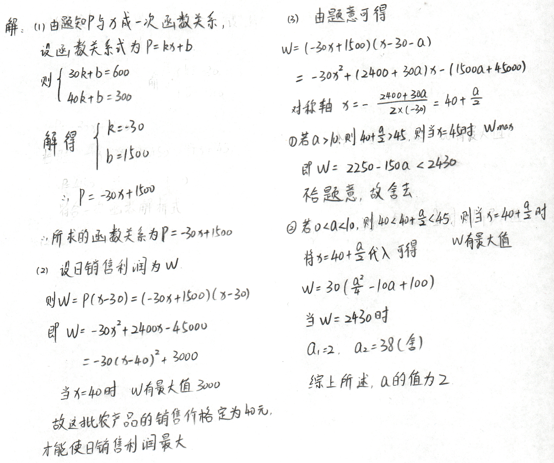 解：(1) 由题知P与x成一次函数关系，
设函数关系式为 P=kx+b
则 { 30k+b=600
40k+b=300
解得 { k=-30
b=1500
∴ P=-30x+1500
∴所求的函数关系为P=-30x+1500
(2) 设日销售利润为W
则W=P(x-30)=(-30x+1500)(x-30)
即 W=-30x²+2400x-45000
=-30(x-40)²+3000
当x=40时 W有最大值3000
故这批农产品的销售价格定为40元，
才能使日销售利润最大
(3) 由题意可得
W=(-30x+1500)(x-30-a)
=-30x²+(2400+30a)x-(1500a+45000)
对称轴 x=-\frac{2400+30a}{2×(-30)}=40+\frac{a}{2}
①若a>10,则40+\frac{a}{2}>45,则当x=45时 Wmax
即W=2250-150a<2430
不合题意，故舍去
②若0<a<10,则40<40+\frac{a}{2}<45,则当x=40+\frac{a}{2}时
W有最大值
将x=40+\frac{a}{2}代入 可得
W=30(\frac{a²}{4}-10a+100)
当W=2430时
a₁=2, a₂=38(舍)
综上所述,a的值为2